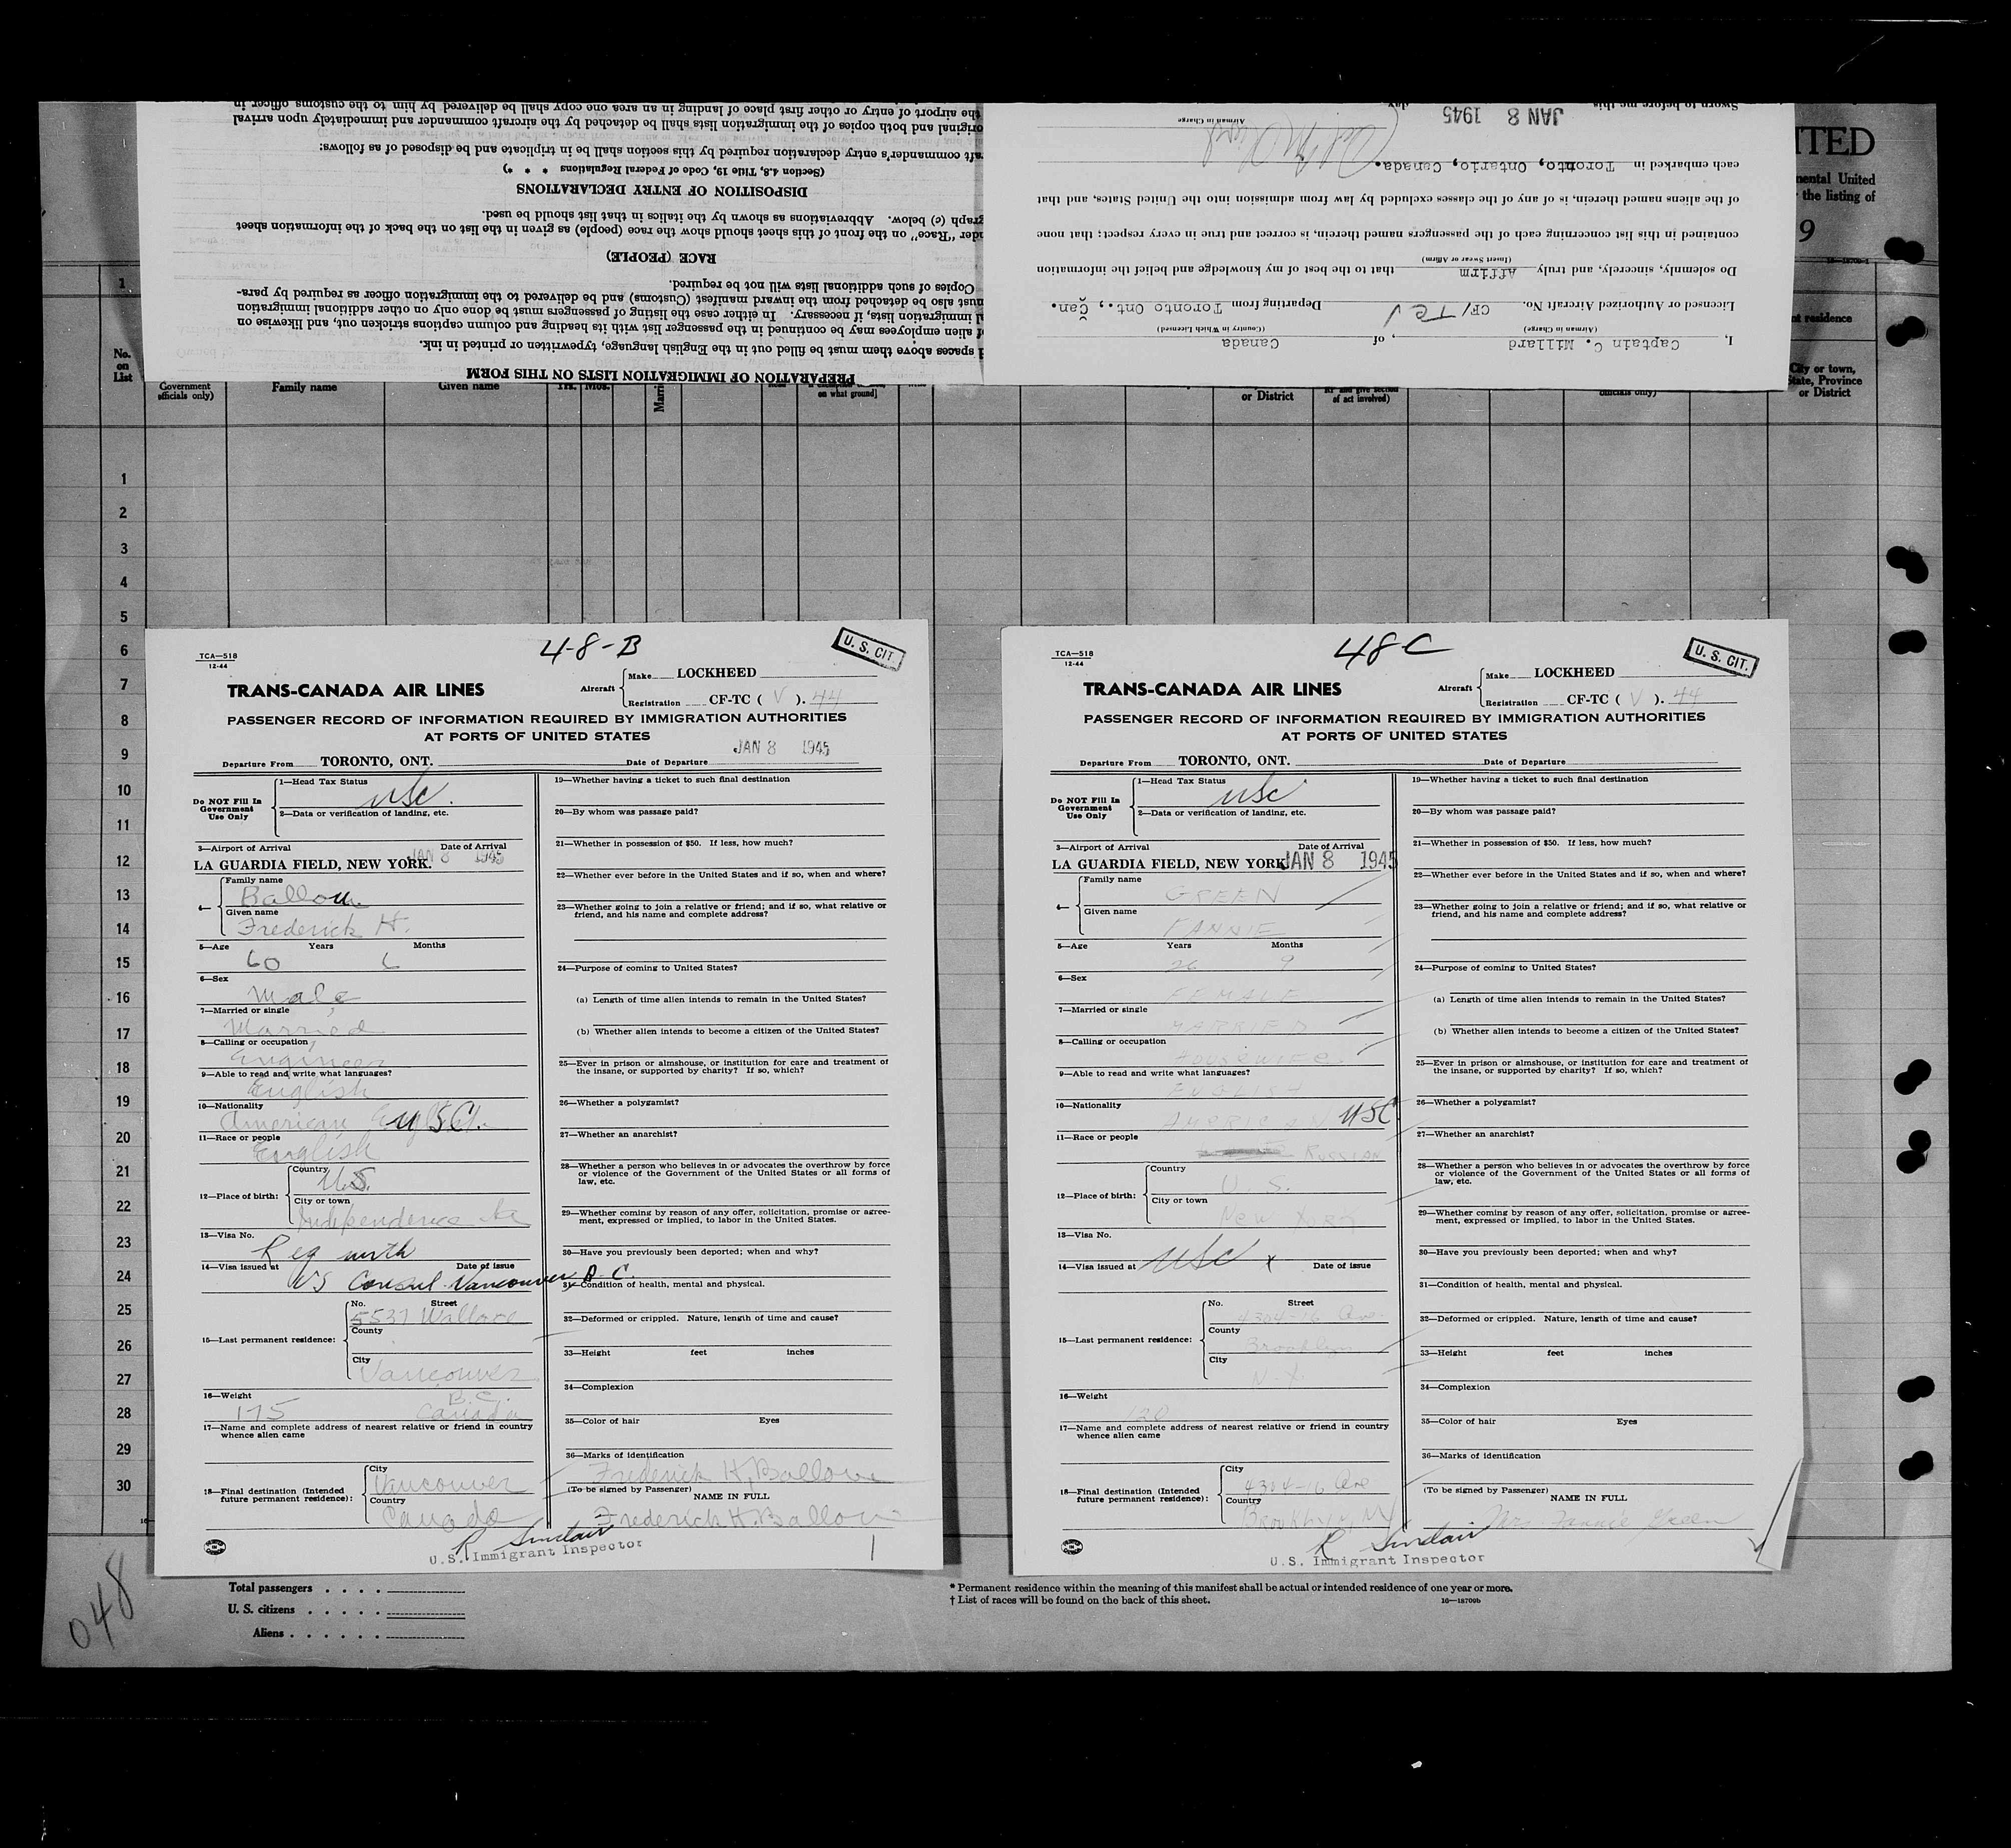 PREPARATION OF IMMIGRATION LISTS ON THIS FORM
spaces above them must be filled out in the English language, typewritten or printed in ink.
of alien employees may be continued in the passenger list with its heading and column captions stricken out, and likewise on
immigration lists, if necessary. In either case the listing of passengers must be done only on other additional immigration
must also be detached from the inward manifest (Customs) and be delivered to the immigration officer as required by para-
Copies of such additional lists will not be required.
RACE (PEOPLE)
"Race" on the front of this sheet should show the race (people) as given in the list on the back of the information sheet
graph (c) below. Abbreviations as shown by the italics in that list should be used.
DISPOSITION OF ENTRY DECLARATIONS
(Section 4.8, Title 19, Code of Federal Regulations * * *)
commander's entry declaration required by this section shall be in triplicate and be disposed of as follows:
original and both copies of the immigration lists shall be detached by the aircraft commander and immediately upon arrival
the airport of entry or other first place of landing in an area one copy shall be delivered by him to the customs officer in
I, Captain C. Millard, of Canada
(Airman in Charge) (Country in Which Licensed)
Licensed or Authorized Aircraft No. CF/TCJ Departing from Toronto Ont., Can.
Do solemnly, sincerely, and truly Affirm that to the best of my knowledge and belief the information
(Insert Swear or Affirm)
contained in this list concerning each of the passengers named therein, is correct and true in every respect; that none
of the aliens named therein, is of any of the classes excluded by law from admission into the United States, and that
each embarked in Toronto, Ontario, Canada.
Airman in Charge
Sworn to before me this JAN 8 1945 day
ITED
mental United
the listing of
9
residence
City or town,
State, Province
or District
1
No.
on
List
Government
officials only)
Family name
Given name
Yrs. Mos.
on what ground]
or District
of act involved)
officials only)
1
2
3
4
5
6
7
8
9
10
11
12
13
14
15
16
17
18
19
20
21
22
23
24
25
26
27
28
29
30
TCA—518
12-44
48-B
U. S. CIT.
TRANS-CANADA AIR LINES
Aircraft
Make LOCKHEED
Registration CF-TC ( V ). 44
PASSENGER RECORD OF INFORMATION REQUIRED BY IMMIGRATION AUTHORITIES
AT PORTS OF UNITED STATES
JAN 8 1945
Departure From TORONTO, ONT. Date of Departure
Do NOT Fill In
Government
Use Only
1—Head Tax Status
USC.
2—Data or verification of landing, etc.
3—Airport of Arrival Date of Arrival
LA GUARDIA FIELD, NEW YORK. JAN 8 1945
4—
Family name
Ballou
Given name
Frederick H.
5—Age Years Months
60 6
6—Sex
Male
7—Married or single
Married
8—Calling or occupation
Engineer
9—Able to read and write what languages?
English
10—Nationality
American USC.
11—Race or people
English
12—Place of birth:
Country
U.S.
City or town
Independence Ia
13—Visa No.
Reg with
14—Visa issued at Date of issue
US Consul Vancouver B.C.
15—Last permanent residence:
No. Street
5537 Wallace
County
City
Vancouver
B.C.
16—Weight
175 Canada
17—Name and complete address of nearest relative or friend in country
whence alien came
18—Final destination (Intended
future permanent residence):
City
Vancouver
Country
Canada
19—Whether having a ticket to such final destination
20—By whom was passage paid?
21—Whether in possession of $50. If less, how much?
22—Whether ever before in the United States and if so, when and where?
23—Whether going to join a relative or friend; and if so, what relative or
friend, and his name and complete address?
24—Purpose of coming to United States?
(a) Length of time alien intends to remain in the United States?
(b) Whether alien intends to become a citizen of the United States?
25—Ever in prison or almshouse, or institution for care and treatment of
the insane, or supported by charity? If so, which?
26—Whether a polygamist?
27—Whether an anarchist?
28—Whether a person who believes in or advocates the overthrow by force
or violence of the Government of the United States or all forms of
law, etc.
29—Whether coming by reason of any offer, solicitation, promise or agree-
ment, expressed or implied, to labor in the United States.
30—Have you previously been deported; when and why?
31—Condition of health, mental and physical.
32—Deformed or crippled. Nature, length of time and cause?
33—Height feet inches
34—Complexion
35—Color of hair Eyes
36—Marks of identification
Frederick H. Ballou
(To be signed by Passenger)
NAME IN FULL
Frederick H. Ballou
R Sinclair
U.S. Immigrant Inspector
TCA—518
12-44
48C
U. S. CIT.
TRANS-CANADA AIR LINES
Aircraft
Make LOCKHEED
Registration CF-TC ( V ). 44
PASSENGER RECORD OF INFORMATION REQUIRED BY IMMIGRATION AUTHORITIES
AT PORTS OF UNITED STATES
Departure From TORONTO, ONT. Date of Departure
Do NOT Fill In
Government
Use Only
1—Head Tax Status
USC
2—Data or verification of landing, etc.
3—Airport of Arrival Date of Arrival
LA GUARDIA FIELD, NEW YORK JAN 8 1945
4—
Family name
GREEN
Given name
FANNIE
5—Age Years Months
26 9
6—Sex
FEMALE
7—Married or single
MARRIED
8—Calling or occupation
HOUSEWIFE
9—Able to read and write what languages?
ENGLISH
10—Nationality
AMERICAN USC
11—Race or people
RUSSIAN
12—Place of birth:
Country
U. S.
City or town
New York
13—Visa No.
USC x
14—Visa issued at Date of issue
15—Last permanent residence:
No. Street
4304-16 Ave.
County
Brooklyn
City
N.Y.
16—Weight
120
17—Name and complete address of nearest relative or friend in country
whence alien came
18—Final destination (Intended
future permanent residence):
City
4304-16 Ave
Country
Brooklyn, NY
19—Whether having a ticket to such final destination
20—By whom was passage paid?
21—Whether in possession of $50. If less, how much?
22—Whether ever before in the United States and if so, when and where?
23—Whether going to join a relative or friend; and if so, what relative or
friend, and his name and complete address?
24—Purpose of coming to United States?
(a) Length of time alien intends to remain in the United States?
(b) Whether alien intends to become a citizen of the United States?
25—Ever in prison or almshouse, or institution for care and treatment of
the insane, or supported by charity? If so, which?
26—Whether a polygamist?
27—Whether an anarchist?
28—Whether a person who believes in or advocates the overthrow by force
or violence of the Government of the United States or all forms of
law, etc.
29—Whether coming by reason of any offer, solicitation, promise or agree-
ment, expressed or implied, to labor in the United States.
30—Have you previously been deported; when and why?
31—Condition of health, mental and physical.
32—Deformed or crippled. Nature, length of time and cause?
33—Height feet inches
34—Complexion
35—Color of hair Eyes
36—Marks of identification
(To be signed by Passenger)
NAME IN FULL
Mrs. Fannie Green
R Sinclair
U.S. Immigrant Inspector
048
Total passengers
U. S. citizens
Aliens
* Permanent residence within the meaning of this manifest shall be actual or intended residence of one year or more.
† List of races will be found on the back of this sheet. 16—18709b